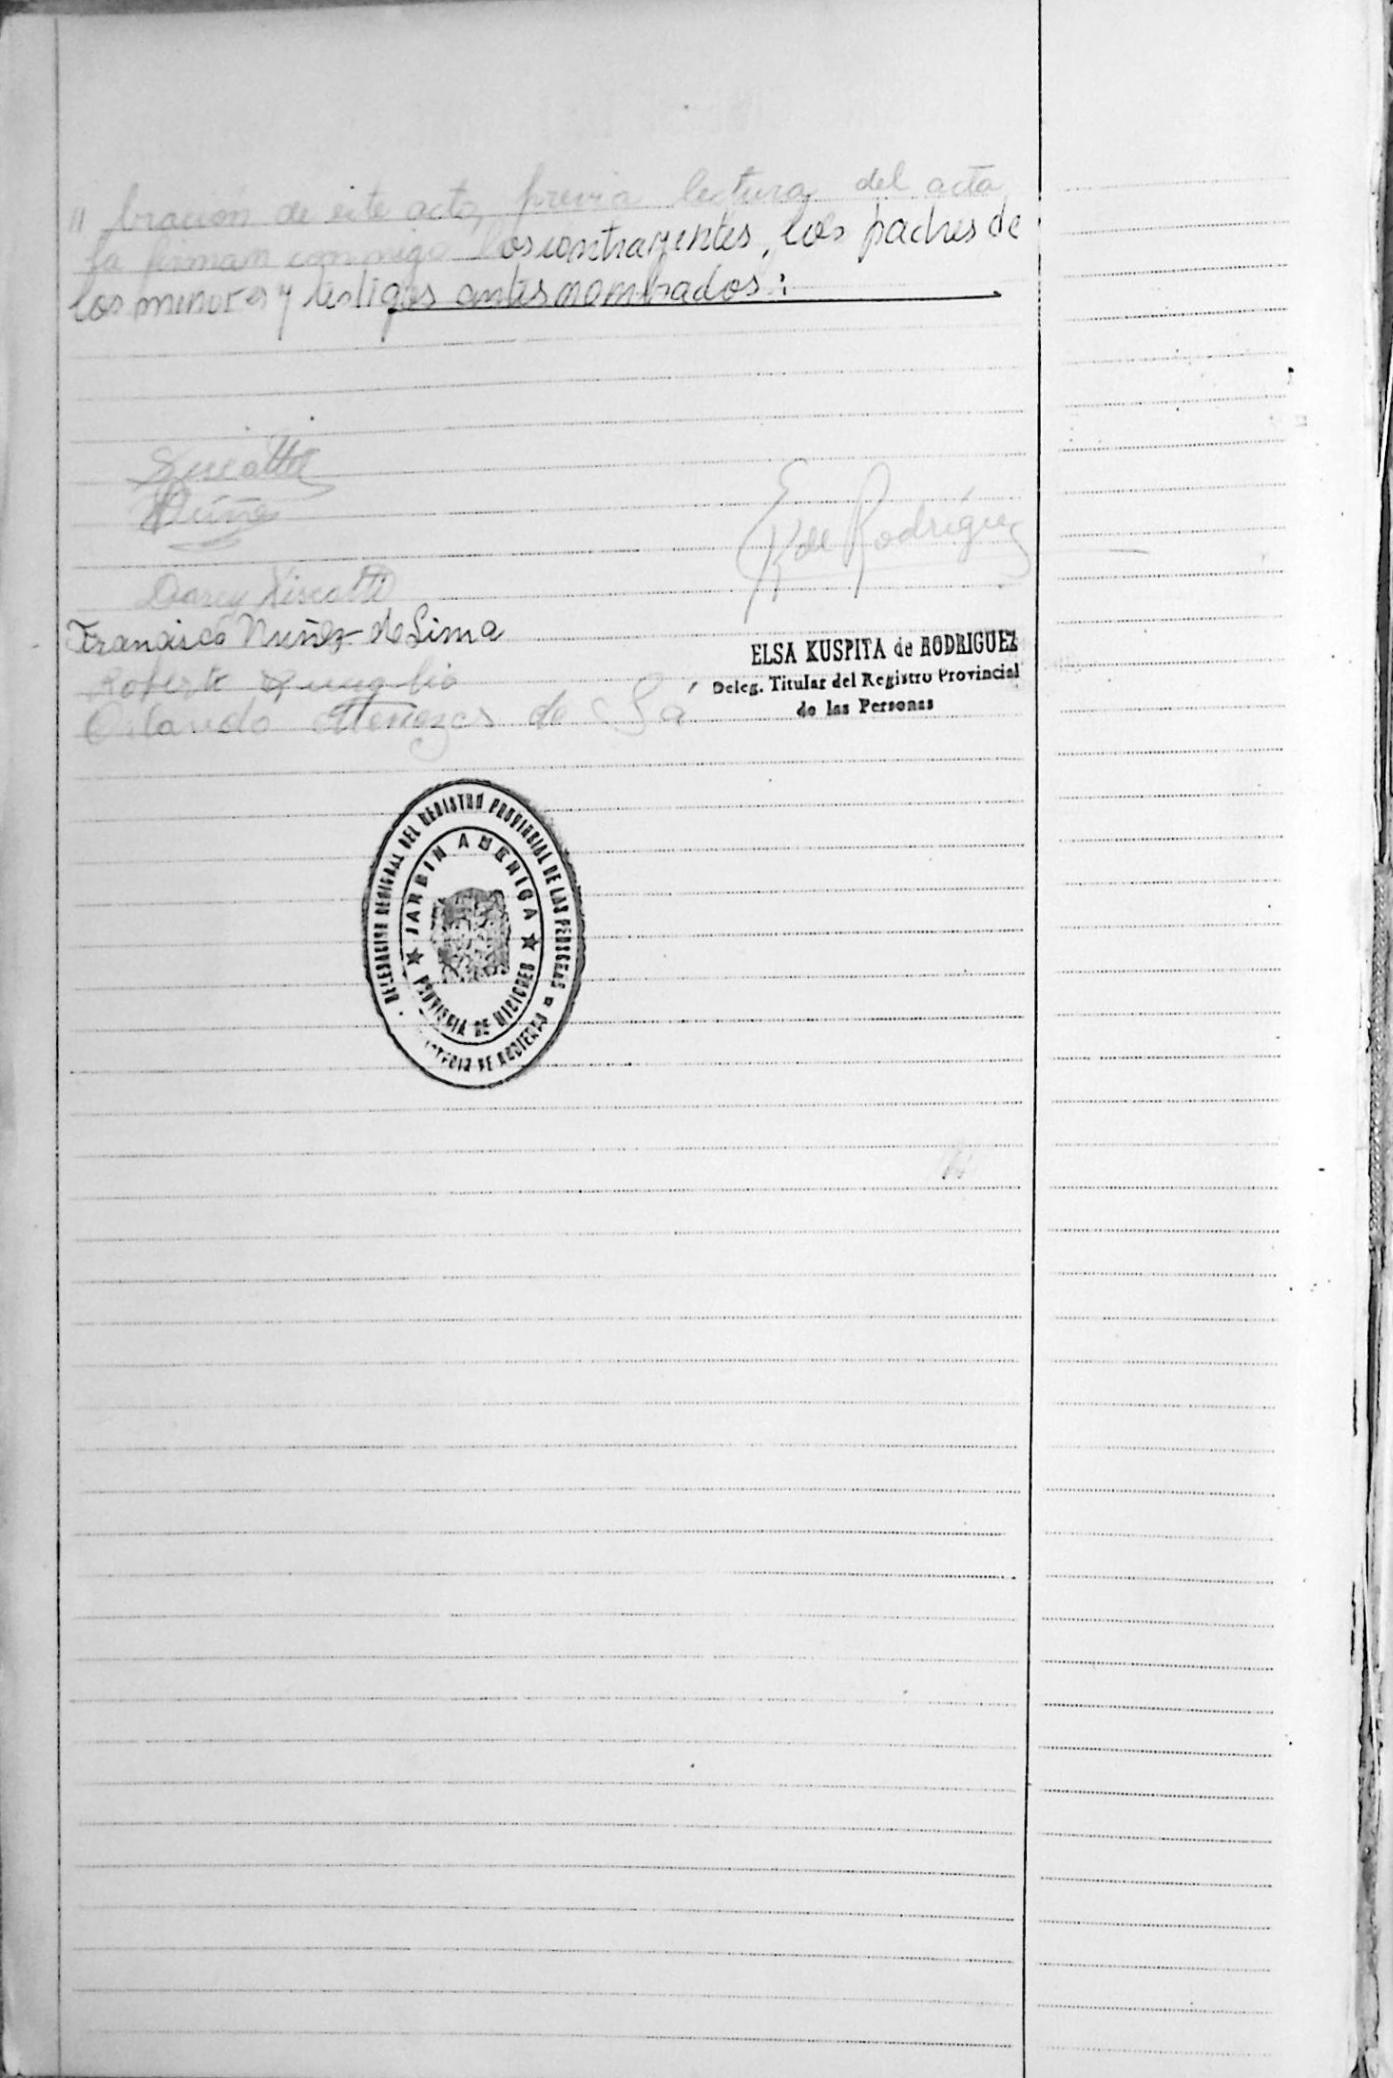 " bración de este acto, previa lectura del acta
la firman conmigo los contrayentes, los padres de
los menores y testigos antes nombrados:
Núñez
Darcy
Francisco Nuñez de Lima
Roberto
Orlando Menezes de Sá
E K de Rodríguez
ELSA KUSPITA de RODRIGUEZ
Deleg. Titular del Registro Provincial
de las Personas
DELEGACION REGIONAL DEL REGISTRO PROVINCIAL DE LAS PERSONAS
JARDIN AMERICA
PROVINCIA DE MISIONES
DE GOBIERNO